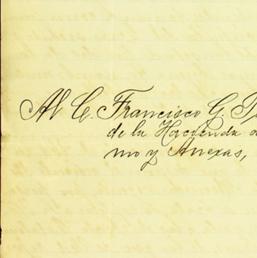 Al C. Francisco G.
de la Hacienda
mo y Anexas,